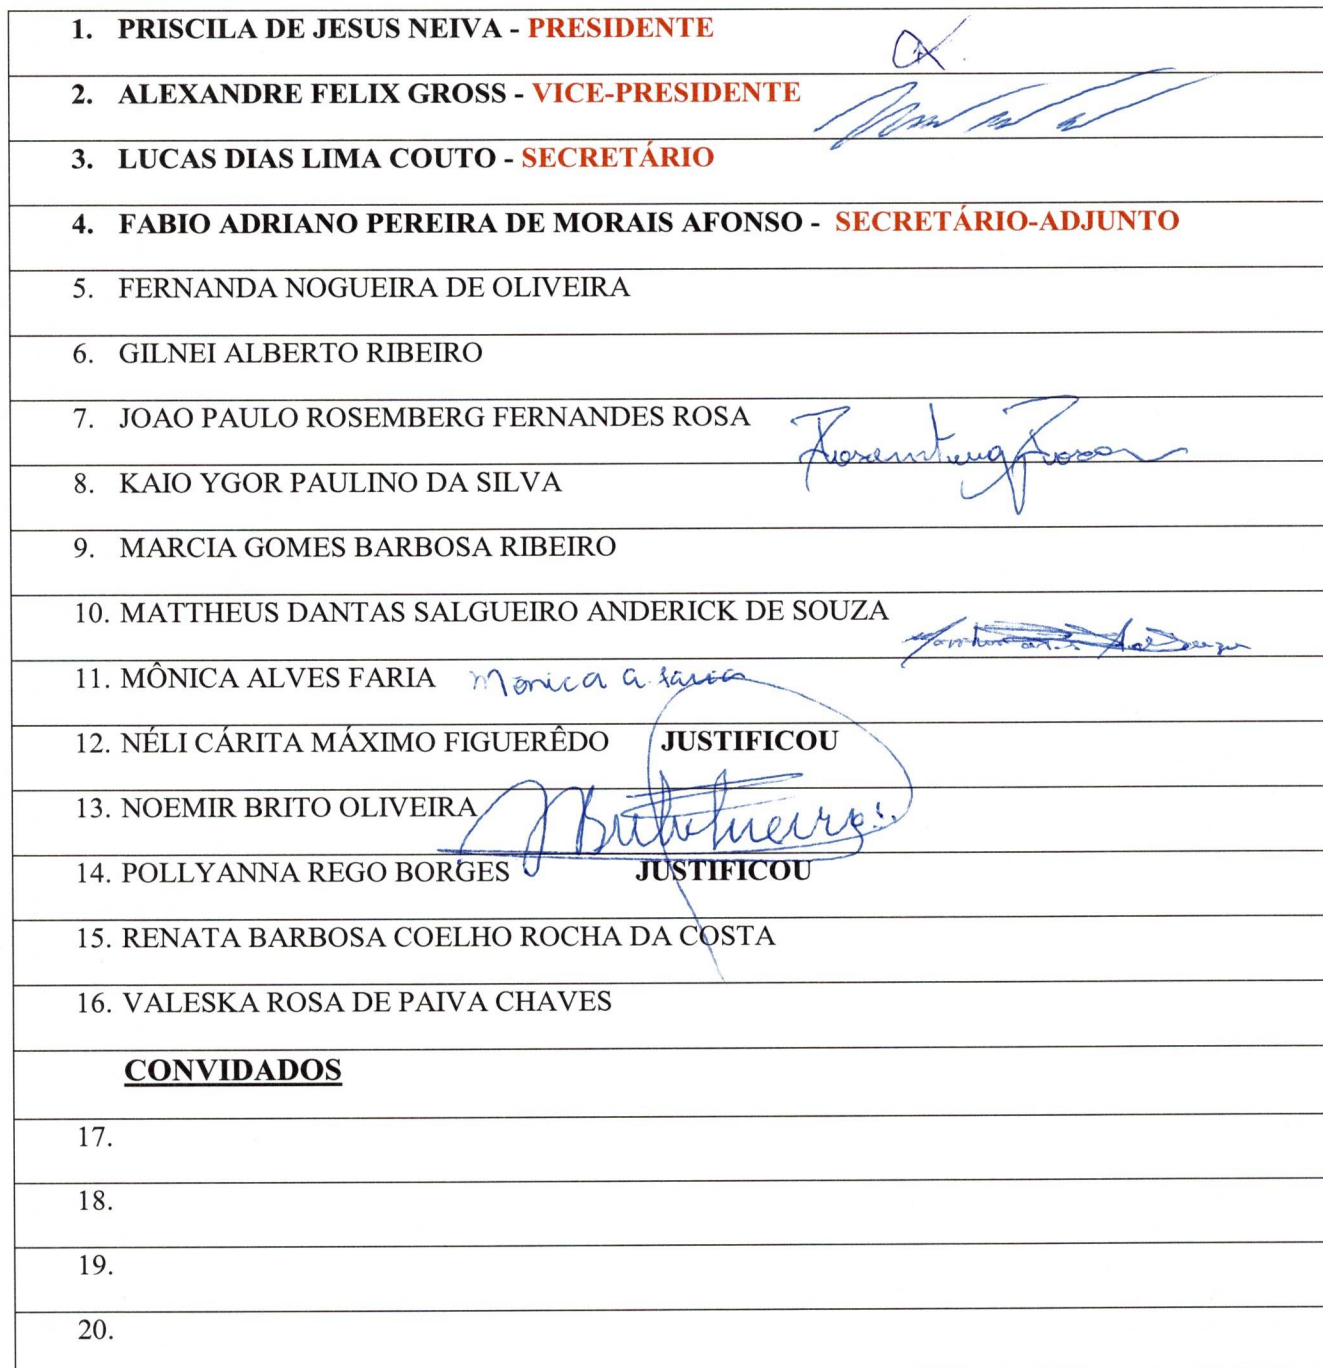 1. PRISCILA DE JESUS NEIVA - PRESIDENTE
2. ALEXANDRE FELIX GROSS - VICE-PRESIDENTE
3. LUCAS DIAS LIMA COUTO - SECRETÁRIO
4. FABIO ADRIANO PEREIRA DE MORAIS AFONSO - SECRETÁRIO-ADJUNTO
5. FERNANDA NOGUEIRA DE OLIVEIRA
6. GILNEI ALBERTO RIBEIRO
7. JOAO PAULO ROSEMBERG FERNANDES ROSA
8. KAIO YGOR PAULINO DA SILVA
9. MARCIA GOMES BARBOSA RIBEIRO
10. MATTHEUS DANTAS SALGUEIRO ANDERICK DE SOUZA
11. MÔNICA ALVES FARIA Monica a. faria
12. NÉLI CÁRITA MÁXIMO FIGUERÊDO JUSTIFICOU
13. NOEMIR BRITO OLIVEIRA
14. POLLYANNA REGO BORGES JUSTIFICOU
15. RENATA BARBOSA COELHO ROCHA DA COSTA
16. VALESKA ROSA DE PAIVA CHAVES
CONVIDADOS
17.
18.
19.
20.